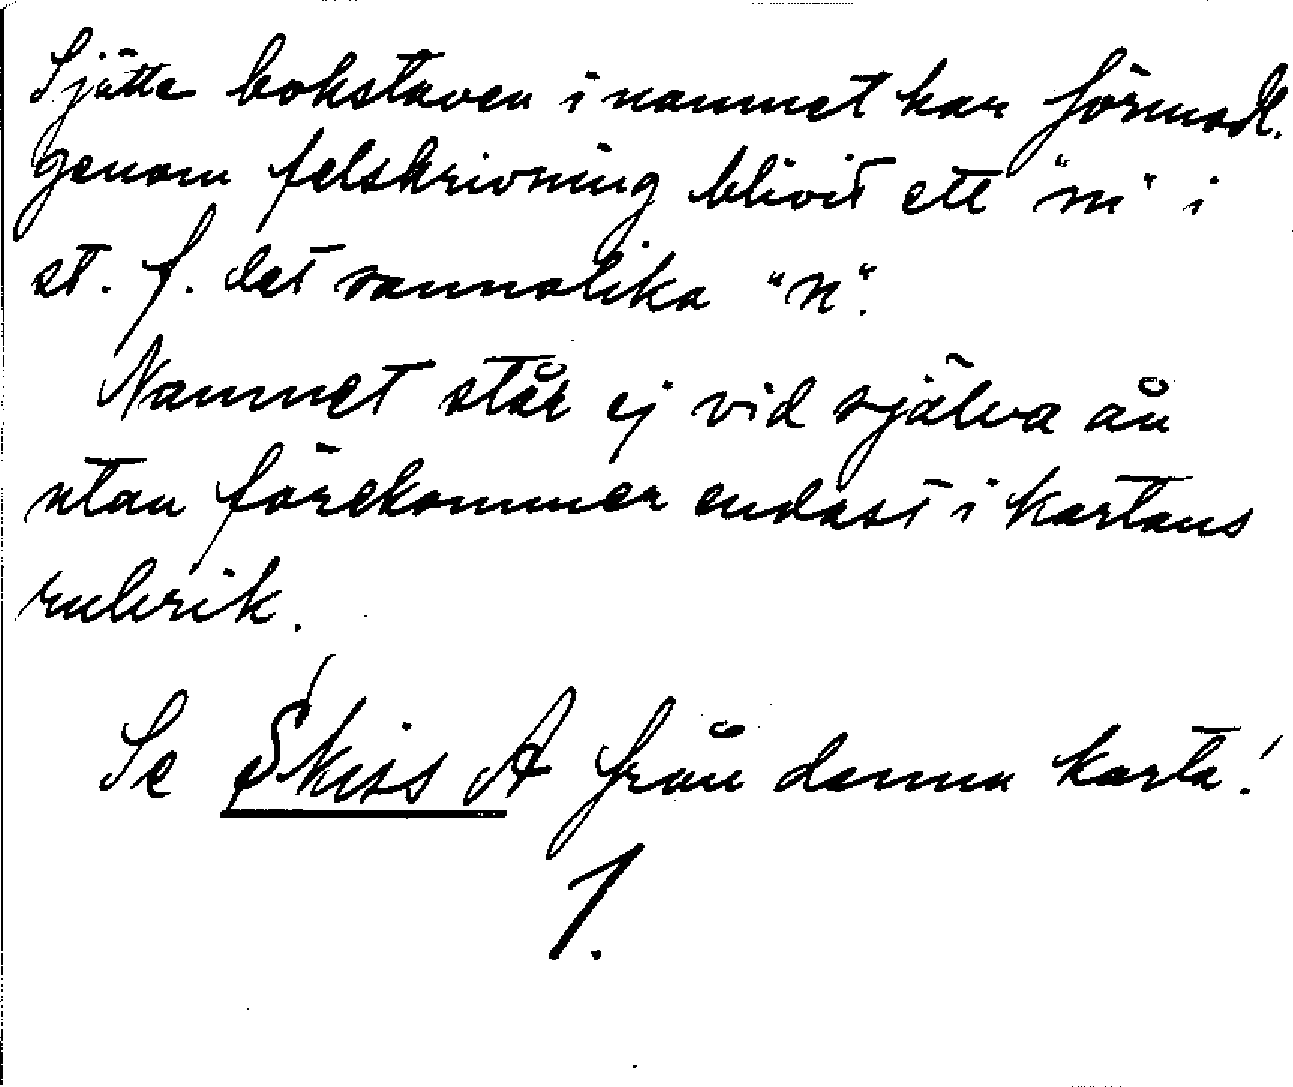 Sjätte bokstaven i namnet har förmodl.
genom felskrivning blivit ett "m" i
st. f. det sannolika "n".
Namnet står ej vid själva ån
utan förekommer endast i kartans
rubrik.
Se Skiss A från denna karta!
1.